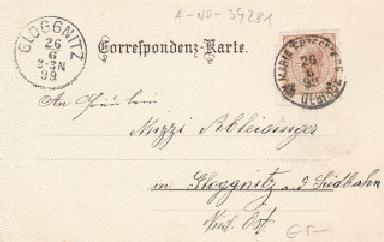 A-NÖ-39281
GLOGGNITZ
26
6
3-3N
99
Correspondenz-Karte.
26
6
99
An Fräulein
Mizzi Ableidinger
in Gloggnitz a/d Südbahn
Nied. Öst.